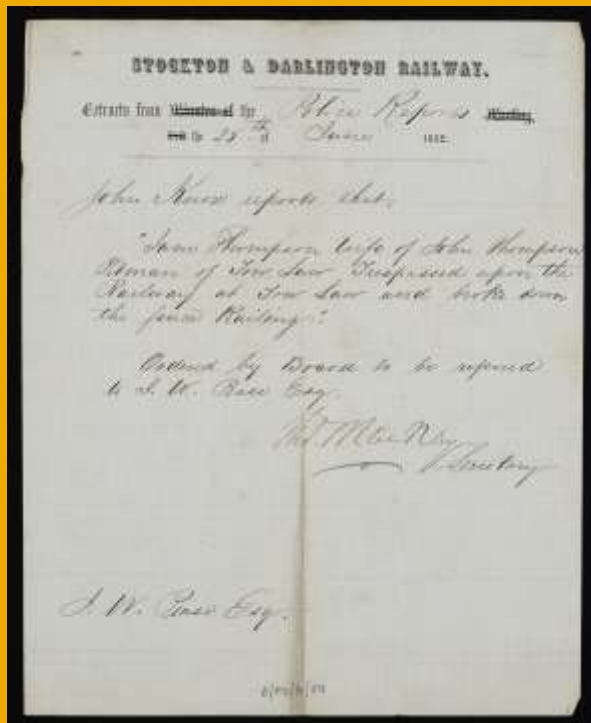 STOCKTON & DARLINGTON RAILWAY.
Extracts from Minutes of the Police Reports Meeting,
the 28th of June 1862.
John Knox reports that,
"Jane Thompson Wife of John Thompson
Pitman of Tow Law Trespassed upon the
Railway at Tow Law and broke down
the fence Railing"
Ordered by Board to be referred
to J. W. Pease Esq
Secretary
J. W. Pease Esq.